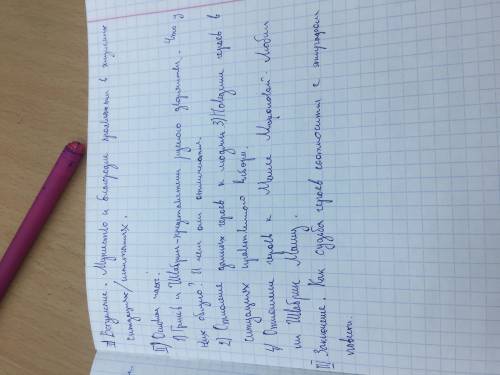 I) Вступление. Мужество и благородие проявляются в жизненных
ситуациях/испытаниях.
II) Основная часть.
1) Гринёв и Швабрин-представители русского дворянства. Что у
них общего? И чем они отличаются.
2) Отношение данных героев к людям 3) Поведение героев в
ситуациях нравственного выбора.
4) Отношение героев к Маше Мироновой. Любил
ли Швабрин Машу.
III Заключение. Как судьба героев соотносится с эпиграфом
повести.